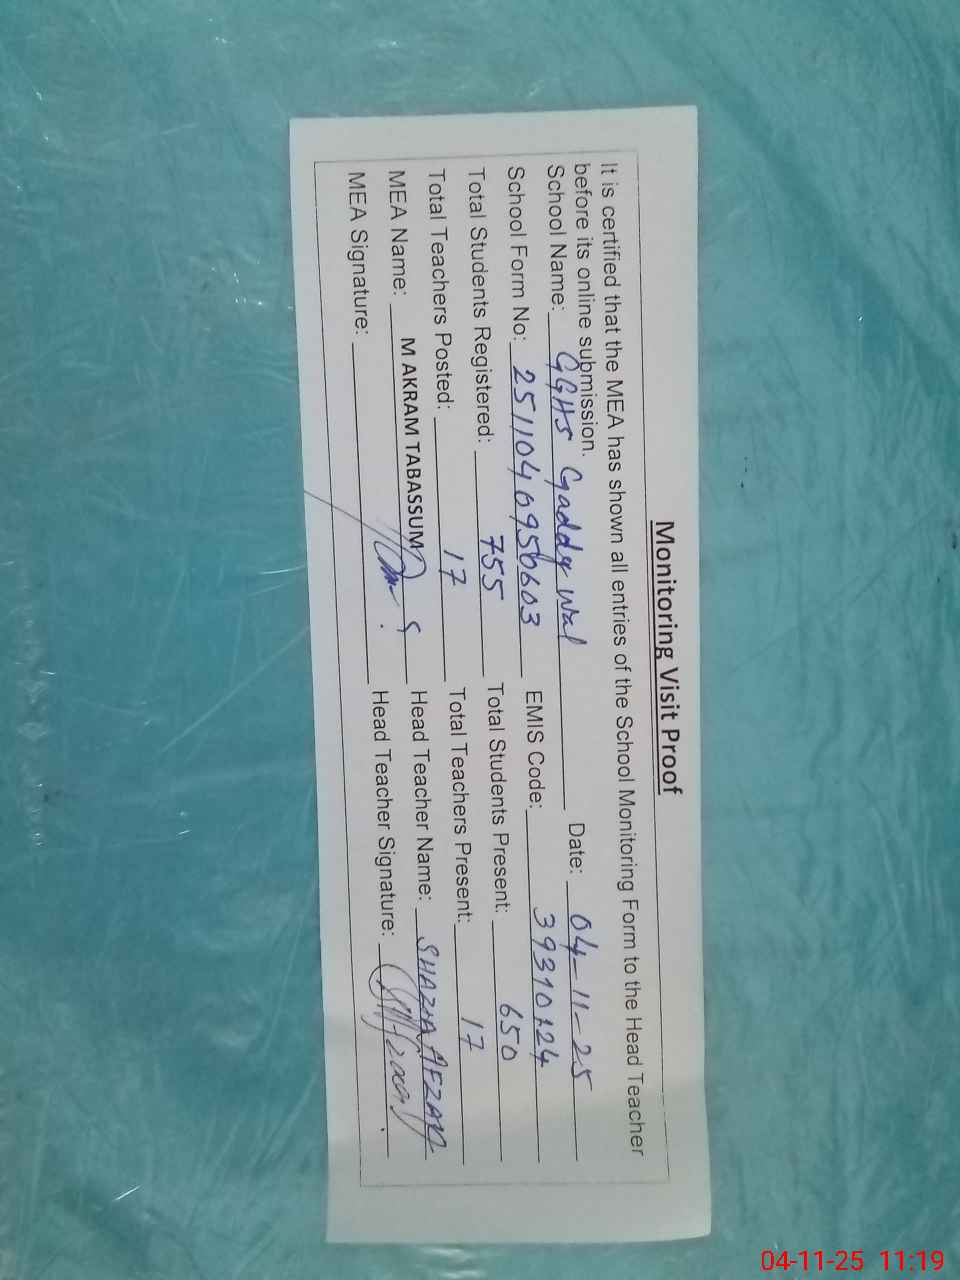 Monitoring Visit Proof
It is certified that the MEA has shown all entries of the School Monitoring Form to the Head Teacher
before its online submission.
School Name: GGHS Gaddywal Date: 04-11-25
School Form No: 2511040956603 EMIS Code: 39310124
Total Students Registered: 755 Total Students Present: 650
Total Teachers Posted: 17 Total Teachers Present: 17
MEA Name: M AKRAM TABASSUM Head Teacher Name: SHAZIA AFZAL
MEA Signature: Head Teacher Signature:
04-11-25 11:19